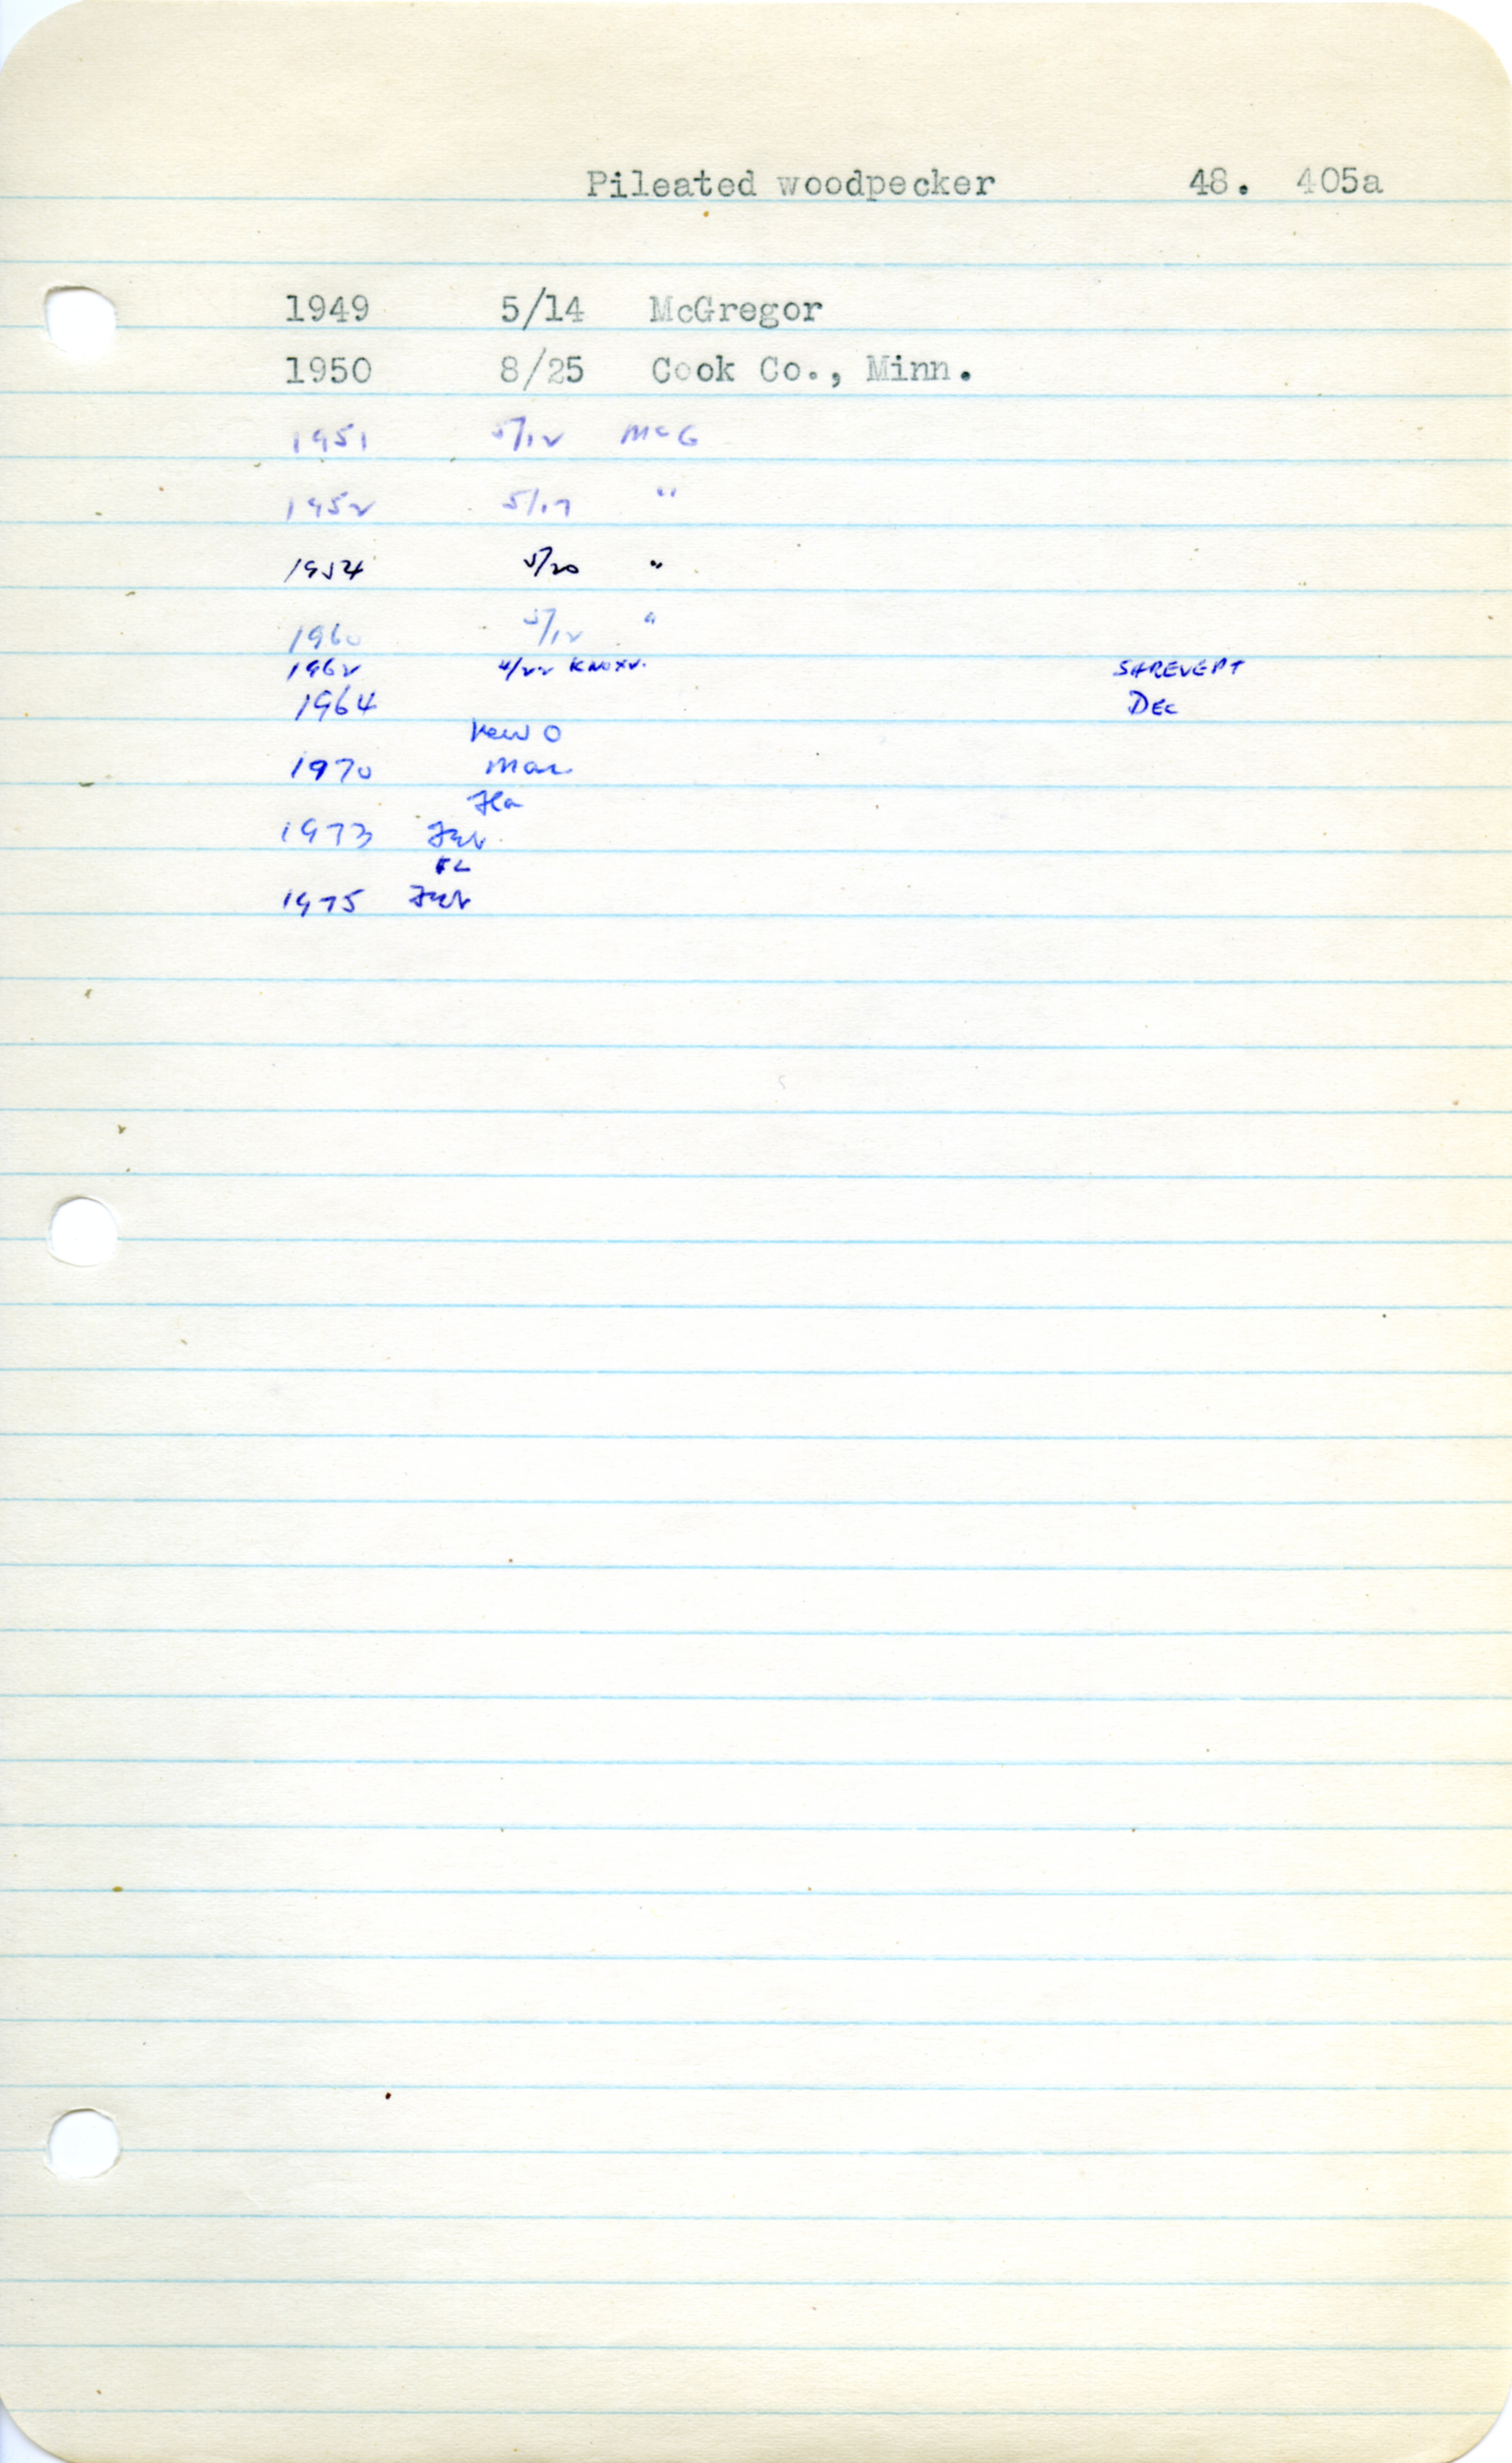 Pileated woodpecker 48. 405a
1949 5/14 McGregor
1950 8/25 Cook Co., Minn.
1951 5/12 McG
1952 5/17 "
1954 5/20 "
1960 5/12 "
1962 4/22 KNOXV. SHREVEPT
1964 DEC
New O
1970 Mar
Fla
1973 Feb
FL
1975 Feb